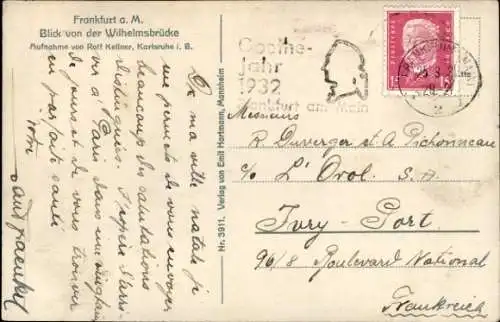 Frankfurt a. M.
Blick von der Wilhelmsbrücke
Aufnahme von Rolf Kellner, Karlsruhe i. B.
De ma ville natale je
me permets de vous envoyer
beaucoup des salutations
distinguées. J'espère d'arri-
ver à Paris dans une
de jours et de vous trouver
en parfaite santé
Nr. 3911. Verlag von Emil Hartmann, Mannheim
Goethe-
Jahr
1932
Frankfurt am Main
DEUTSCHES REICH
15
Messieurs
R. Duverger et A. Pichonneau
c/o L'Orol S.A.
Ivry-Port
96/8 Boulevard National
Frankreich